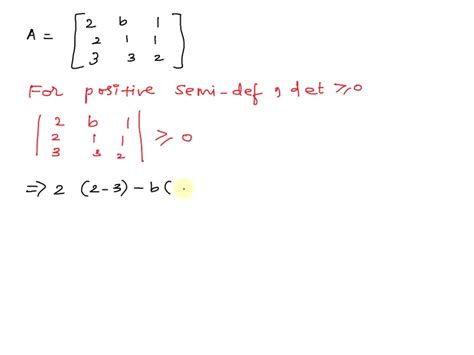 A = [ 2 b 1
2 1 1
3 3 2 ]
For positive semi-def, det ≥ 0
| 2 b 1
2 1 1
3 3 2 | ≥ 0
⇒ 2 (2-3) - b(